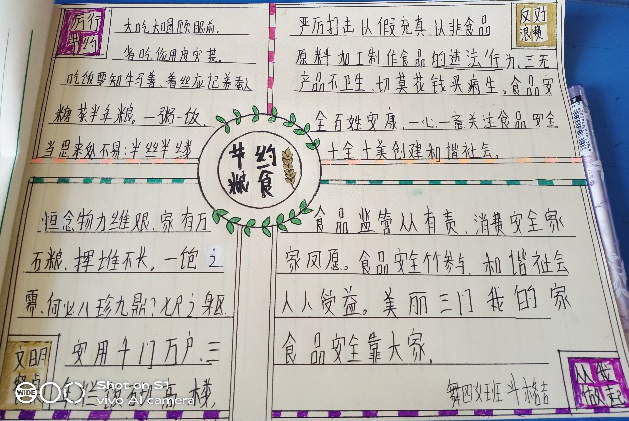 厉行
节约
大吃大喝顾眼前,
省吃俭用度
吃饭要知牛马善,着丝应记养蚕人
糖菜半年粮,一粥一饭
当思来处不易;半丝半缕
严厉打击以假充真、以非食品
原料加工制作食品的违法行为,三无
产品不卫生,切莫花钱买病生,食品安
全百姓安康,一心一意关注食品安全
十全十美创建和谐社会。
反对
浪费
节约
粮食
恒念物力维艰,家有万
石粮,挥堆不长,一饱之
需,何必八珍九鼎?七尺之躯
安用千门万户,三
文明
食品监管从有责,消费安全家
家凤愿。食品安全竹参与,和谐社会
人人受益。美丽三门我的家
食品安全靠大家.
从我
做起
WIDE
Shot on S1
vivo AI camera